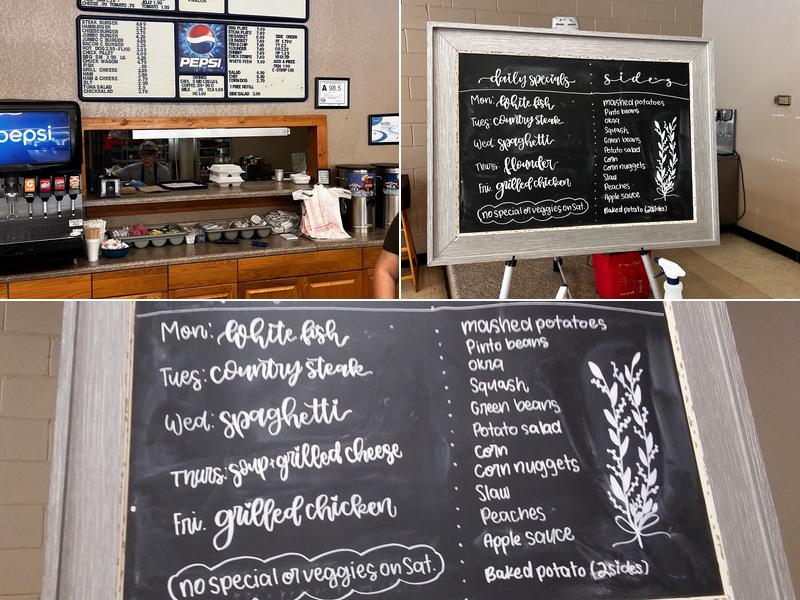 STEAK BURGER
HAMBURGER
CHEESEBURGER
JUMBO BURGER
JUMBO C BURGER
BACON C BURGER
CHUCK WAGON
FISH
GRILL CHEESE
HAM
HAM & CHEESE
BLT
TUNA SALAD
CHICKSALAD
PEPSI
DRINKS
1 FREE REFILL
SIDE SALAD
BBQ PLATE
STEAK PLATE
SIDE ORDER
WHITE FISH
ADD A PIECE
SALAD
CHEF
CORN DOG
A 98.5
pepsi
daily specials
sides
Mon: White fish
Tues: country steak
Wed: spaghetti
Thurs: flounder
Fri: grilled chicken
no special or veggies on Sat.
mashed potatoes
Pinto beans
okra
Squash
Green beans
Potato salad
Corn
Corn nuggets
Slaw
Peaches
Apple sauce
Baked potato (2 sides)
Mon: White fish
Tues: country steak
Wed: spaghetti
Thurs: soup+grilled cheese
Fri. grilled chicken
no special or veggies on Sat.
mashed potatoes
Pinto beans
okra
Squash
Green beans
Potato salad
Corn
Corn nuggets
Slaw
Peaches
Apple sauce
Baked potato (2 sides)